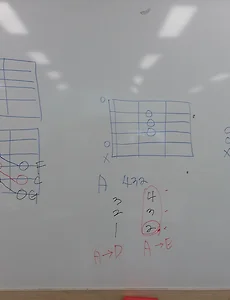 O
O
X
F
C
G
A 432
3 4
2 3
1 2
A→D A→E